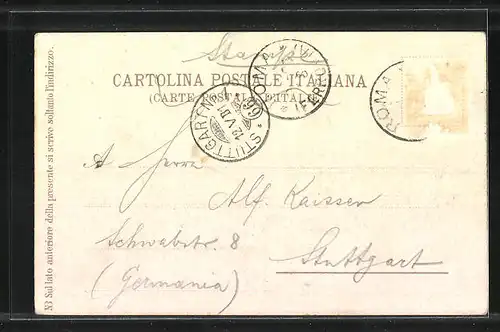 Stampe
CARTOLINA POSTALE ITALIANA
(CARTE POSTALE D'ITALIE)
ROMA
FERROVIA
STUTTGART
12 V
ROMA
A Herrn
Alf. Kaisser
Schwabstr. 8
Stuttgart
(Germania)
NB Sul lato anteriore della presente si scrive soltanto l'indirizzo.